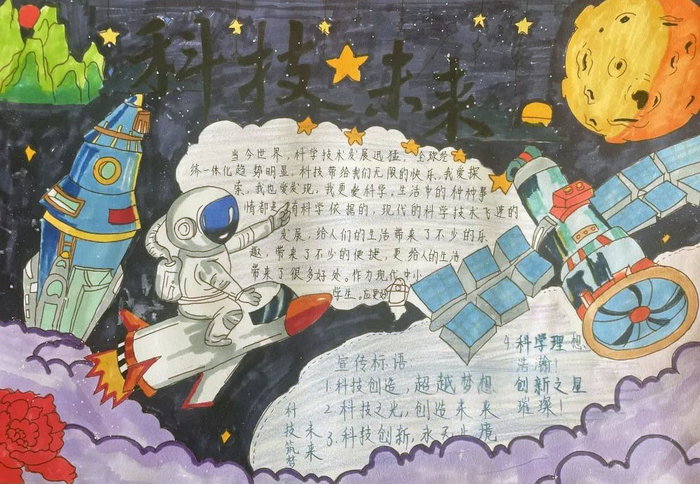 科技未来
当今世界,科学技术发展迅猛,全球经
体一体化趋势明显,科技带给我们无限的快乐,我爱探
索,我也爱发现,我更爱科学,生活中的种种事
情都是有科学依据的,现代的科学技术飞速的
发展,给人们的生活带来了不少的乐
趣,带来了不少的便捷,更给人的生活
带来了很多好处。作为现代中小
学生。应更好
宣传标语
1.科技创造,超越梦想
2.科技之光,创造未来
3.科技创新,永无止境
科技筑梦
未来
科学理想
浩瀚!
创新之星
璀璨!